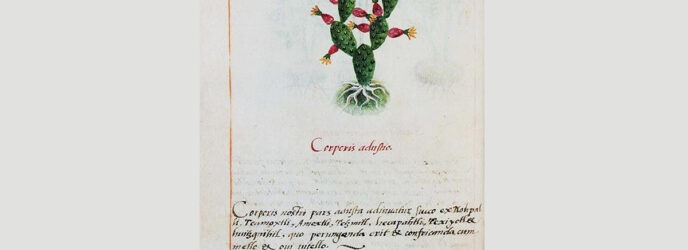 Corporis adustio.
Corporis nostri pars adusta adiuuatur succo ex Nohpal
li, Teamoxtli, Amoxtli, Tetzmitl, hecapahtli, Texiyotl &
huitzquilitl, quo perungenda erit & confricanda cum
melle & oui uitello.